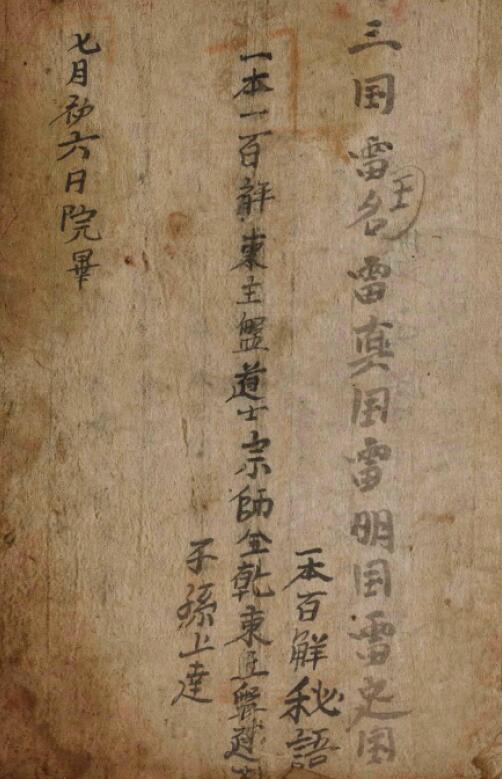 三囯雷名雷真囯雷明囯雷史囯
王
一本百解秘語
一本一百解東主盤道士宗師全乾東
子孫上達
七月初六日院畢